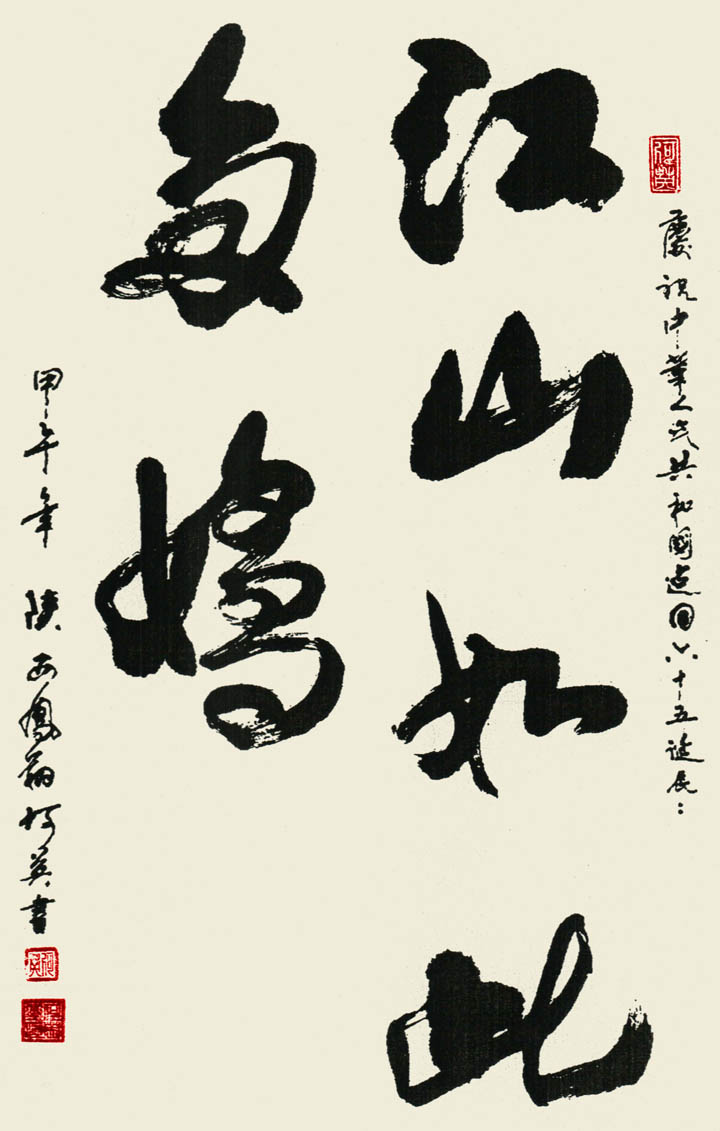 何英
慶祝中華人民共和國建国六十五誕辰：
江山如此
多嬌
甲午年 陝西鳳翔何英書